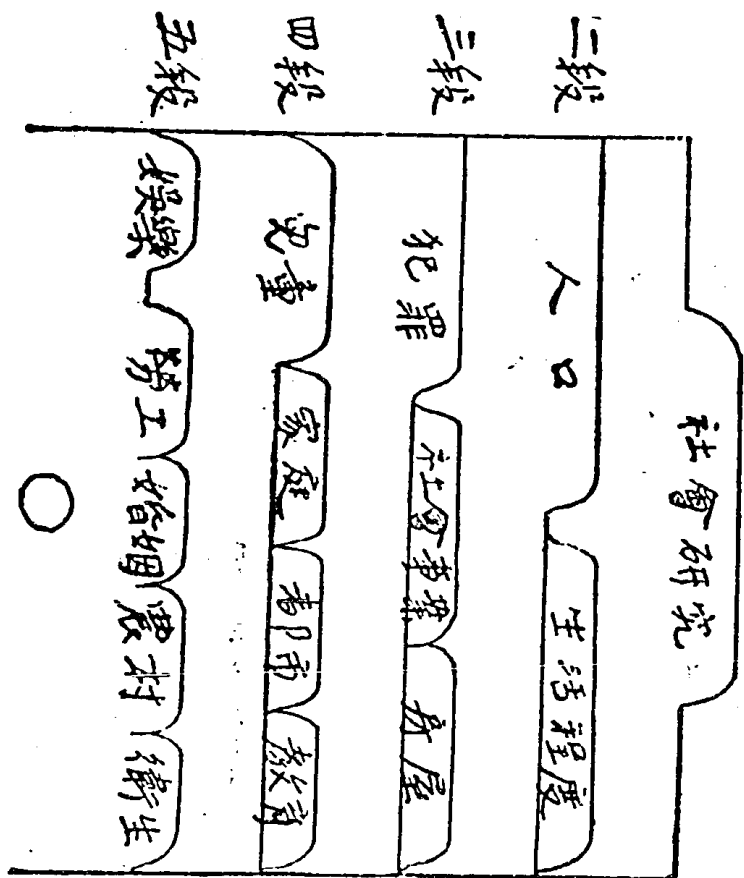 社會研究
二段 人口 生活程度
三段 犯罪 社會事業 房屋
四段 兒童 家庭 都市 教育
五段 娛樂 勞工 婚姻 農村 衛生